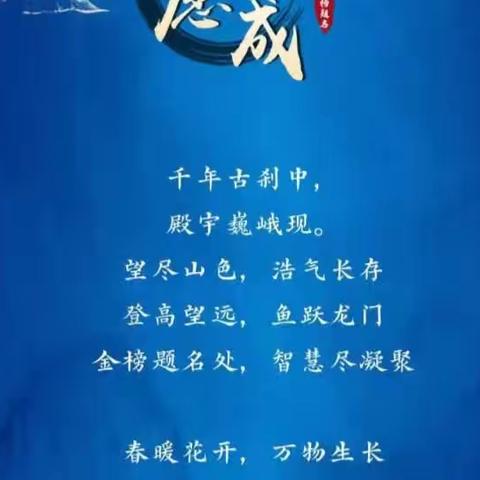 愿成
榜题名
千年古刹中，
殿宇巍峨现。
望尽山色，浩气长存
登高望远，鱼跃龙门
金榜题名处，智慧尽凝聚
春暖花开，万物生长